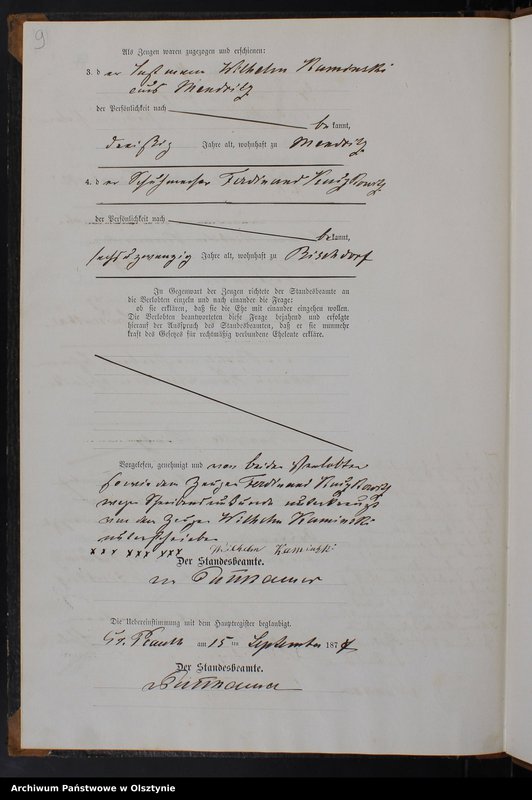 9
Als Zeugen waren zugezogen und erschienen:
3. d er Instmann Wilhelm Kaminski
aus Mendritz
der Persönlichkeit nach
be kannt,
dreißig Jahre alt, wohnhaft zu Mendritz
4. d er Schuhmacher Ferdinand
der Persönlichkeit nach
be kannt,
sechsundzwanzig Jahre alt, wohnhaft zu Bischdorf
In Gegenwart der Zeugen richtete der Standesbeamte an
die Verlobten einzeln und nach einander die Frage:
ob sie erklären, daß sie die Ehe mit einander eingehen wollen.
Die Verlobten beantworteten diese Frage bejahend und erfolgte
hierauf der Ausspruch des Standesbeamten, daß er sie nunmehr
kraft des Gesetzes für rechtmäßig verbundene Eheleute erkläre.
Vorgelesen, genehmigt und von beiden Verlobten
sowie dem Zeugen Ferdinand
wegen Schreibensunkunde unterkreuzt
von dem Zeugen Wilhelm Kaminski
unterschrieben
xxx xxx xxx Wilhelm Kaminski
Der Standesbeamte.
v. Puttkamer
Die Uebereinstimmung mit dem Hauptregister beglaubigt.
Gr. Plauth am 15 ten September 187 7
Der Standesbeamte.
v. Puttkamer
Archiwum Państwowe w Olsztynie